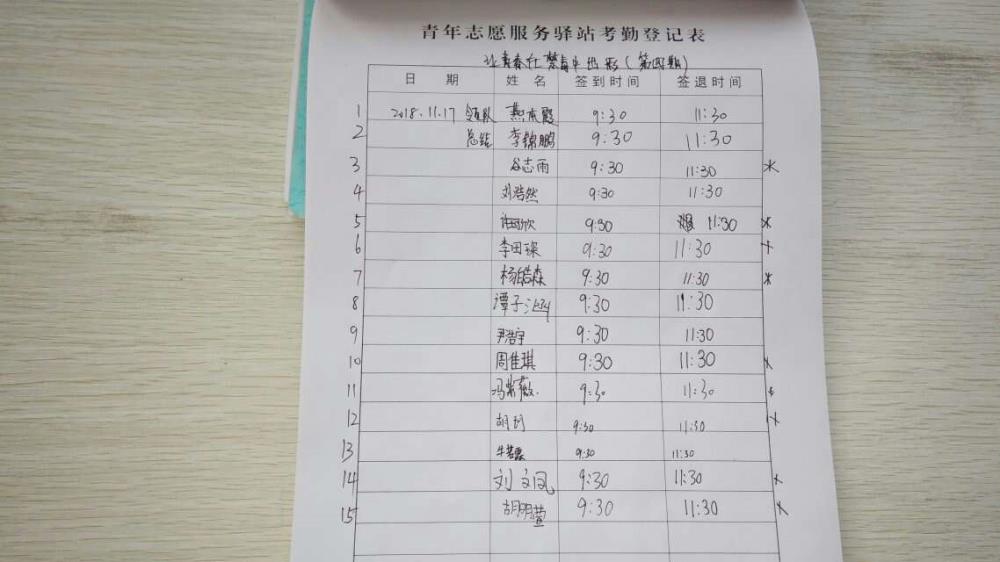 青年志愿服务驿站考勤登记表
让青春在禁毒中出彩(第四期)
日 期 姓 名 签到时间 签退时间
1 2018.11.17 领队 燕庆霞 9:30 11:30
2 总结 李锦鹏 9:30 11:30
3 谷志雨 9:30 11:30 *
4 刘浩然 9:30 11:30
5 9:30 11:30 *
6 李田琛 9:30 11:30 *
7 杨皓森 9:30 11:30 *
8 谭子 9:30 11:30
9 尹浩宇 9:30 11:30
10 周佳琪 9:30 11:30 *
11 冯紫薇 9:30 11:30 *
12 胡 9:30 11:30 *
13 9:30 11:30
14 刘文凤 9:30 11:30 *
15 胡明萱 9:30 11:30 *